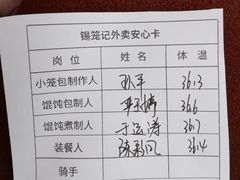 锡笼记外卖安心卡
岗位 姓名 体温
小笼包制作人 36.3
馄饨包制人 36.6
馄饨煮制人 于运涛 36.7
装餐人 陈彩凤 36.4
骑手